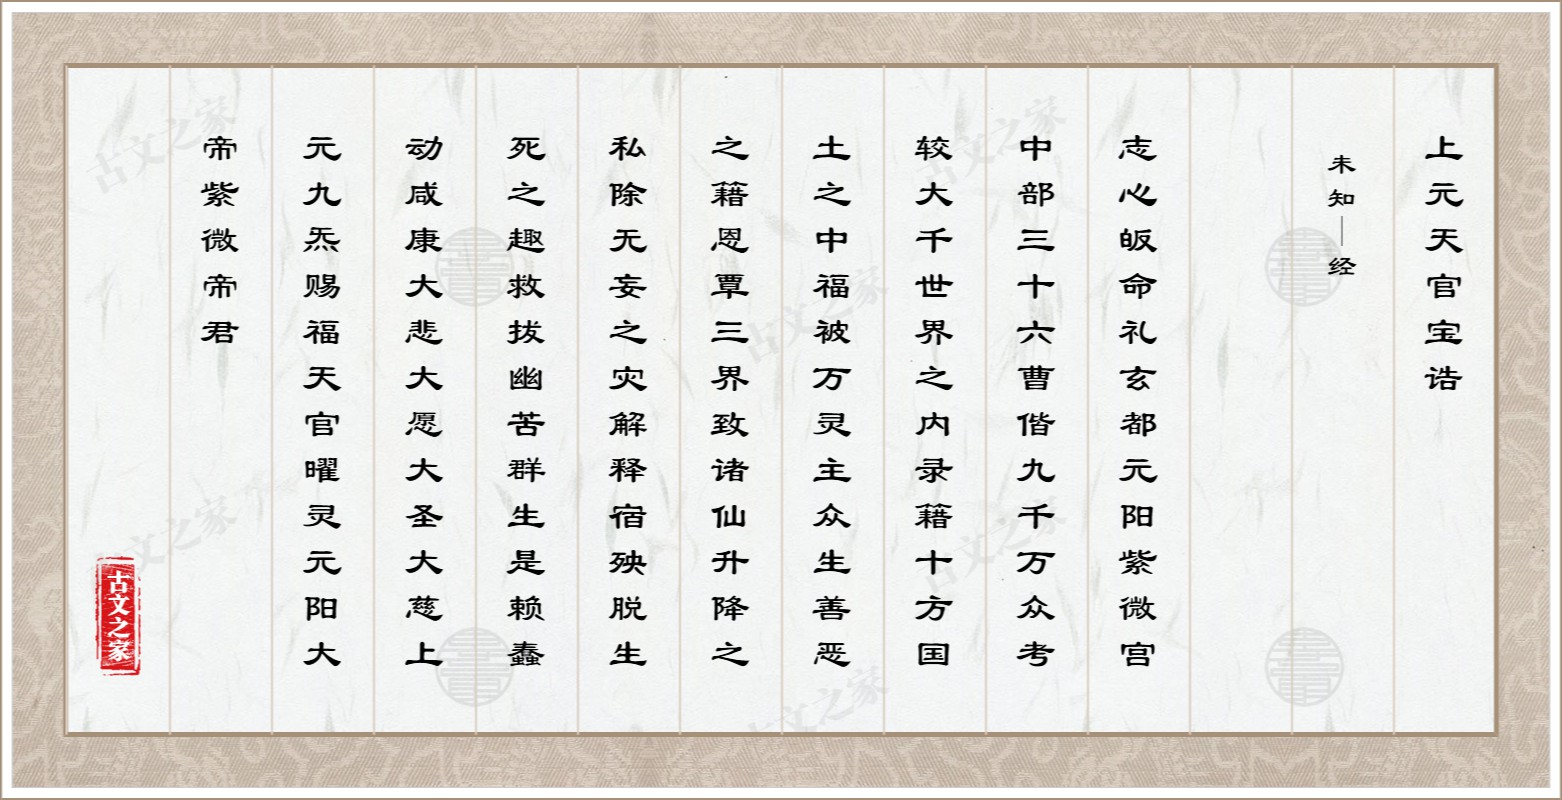 上元天官宝诰
未知—经
志心皈命礼玄都元阳紫微宫
中部三十六曹偕九千万众考
较大千世界之内录籍十方国
土之中福被万灵主众生善恶
之籍恩覃三界致诸仙升降之
私除无妄之灾解释宿殃脱生
死之趣救拔幽苦群生是赖蠢
动咸康大悲大愿大圣大慈上
元九炁赐福天官曜灵元阳大
帝紫微帝君
古文之家